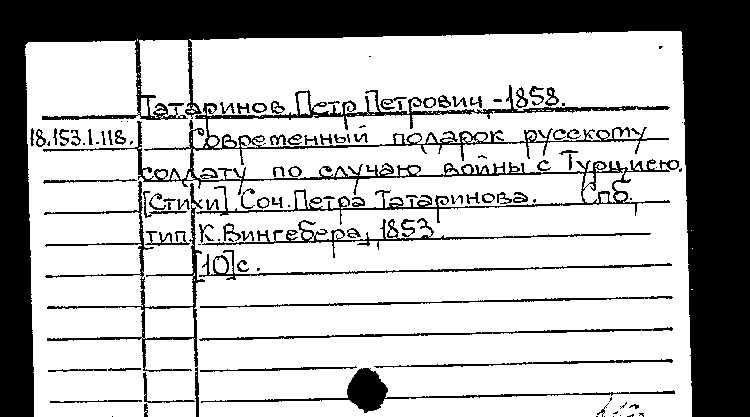 Татаринов, Петр Петрович, -1858.
18.153.1.118. Современный подарок русскому
солдату по случаю войны с Турциею.
[Стихи]. Соч. Петра Татаринова. Спб,
тип. К. Вингебера, 1853.
[10]с.